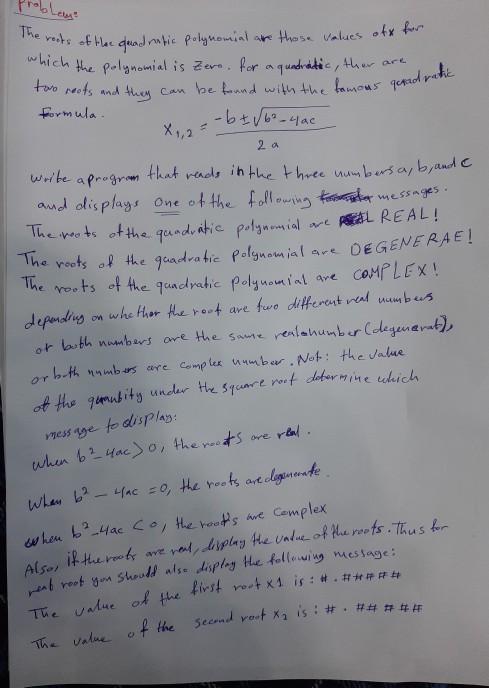 Problem:
The roots of the quadratic polynomial are those values of x for
which the polynomial is zero. for a quadratic, ther are
two roots and they can be found with the famous quadratic
Formula.
X1,2 = -b ± √b² - 4ac
2a
write a program that reads in the three numbers a, b, and c
and displays one of the following messages.
The roots of the quadratic polynomial are REAL!
The roots of the quadratic polynomial are DEGENERAE!
The roots of the quadratic polynomial are COMPLEX!
depending on whether the root are two different real numbers
or both numbers are the same real number (degenerat),
or both numbers are complex number. Not: the value
of the quantity under the square root determine which
message to display:
when b² - 4ac > 0, the roots are real.
When b² - 4ac = 0, the roots are degenerate.
when b² - 4ac < 0, the roots are complex
Also, if the roots are real, display the value of the roots. Thus for
real root you should also display the following message:
The value of the first root x1 is : #.#####
The value of the second root x2 is : #.#####